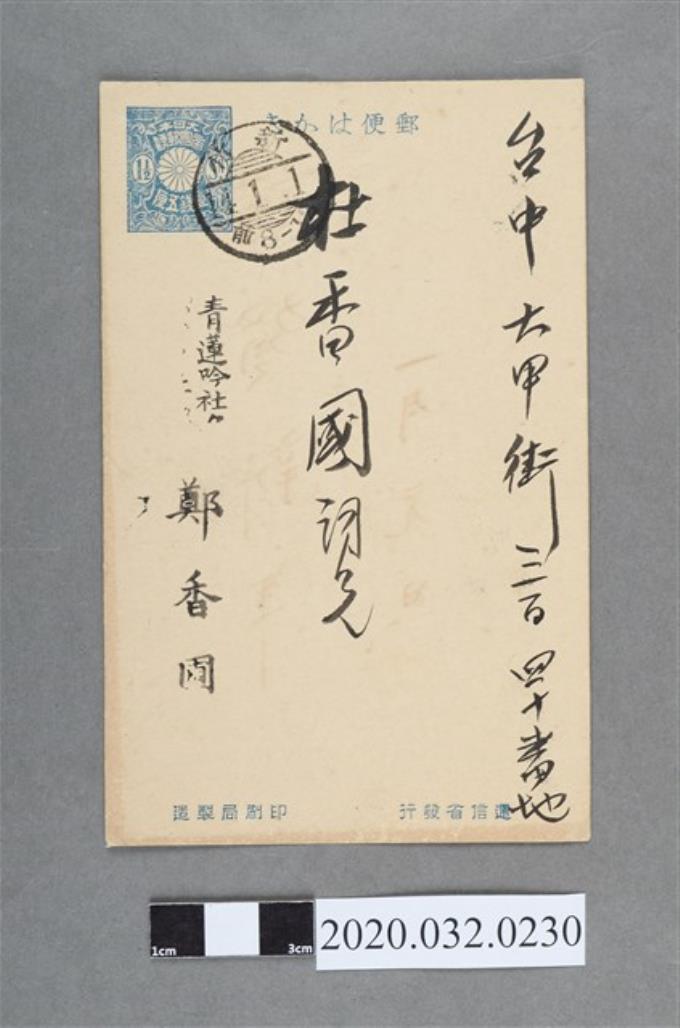 郵便はがき
台中大甲街三百四十番地
杜香國詞兄
青蓮吟社
鄭香圃
1½
1½
14.1.1
前8-
造製局刷印
行發省信遞
1cm
3cm
2020.032.0230